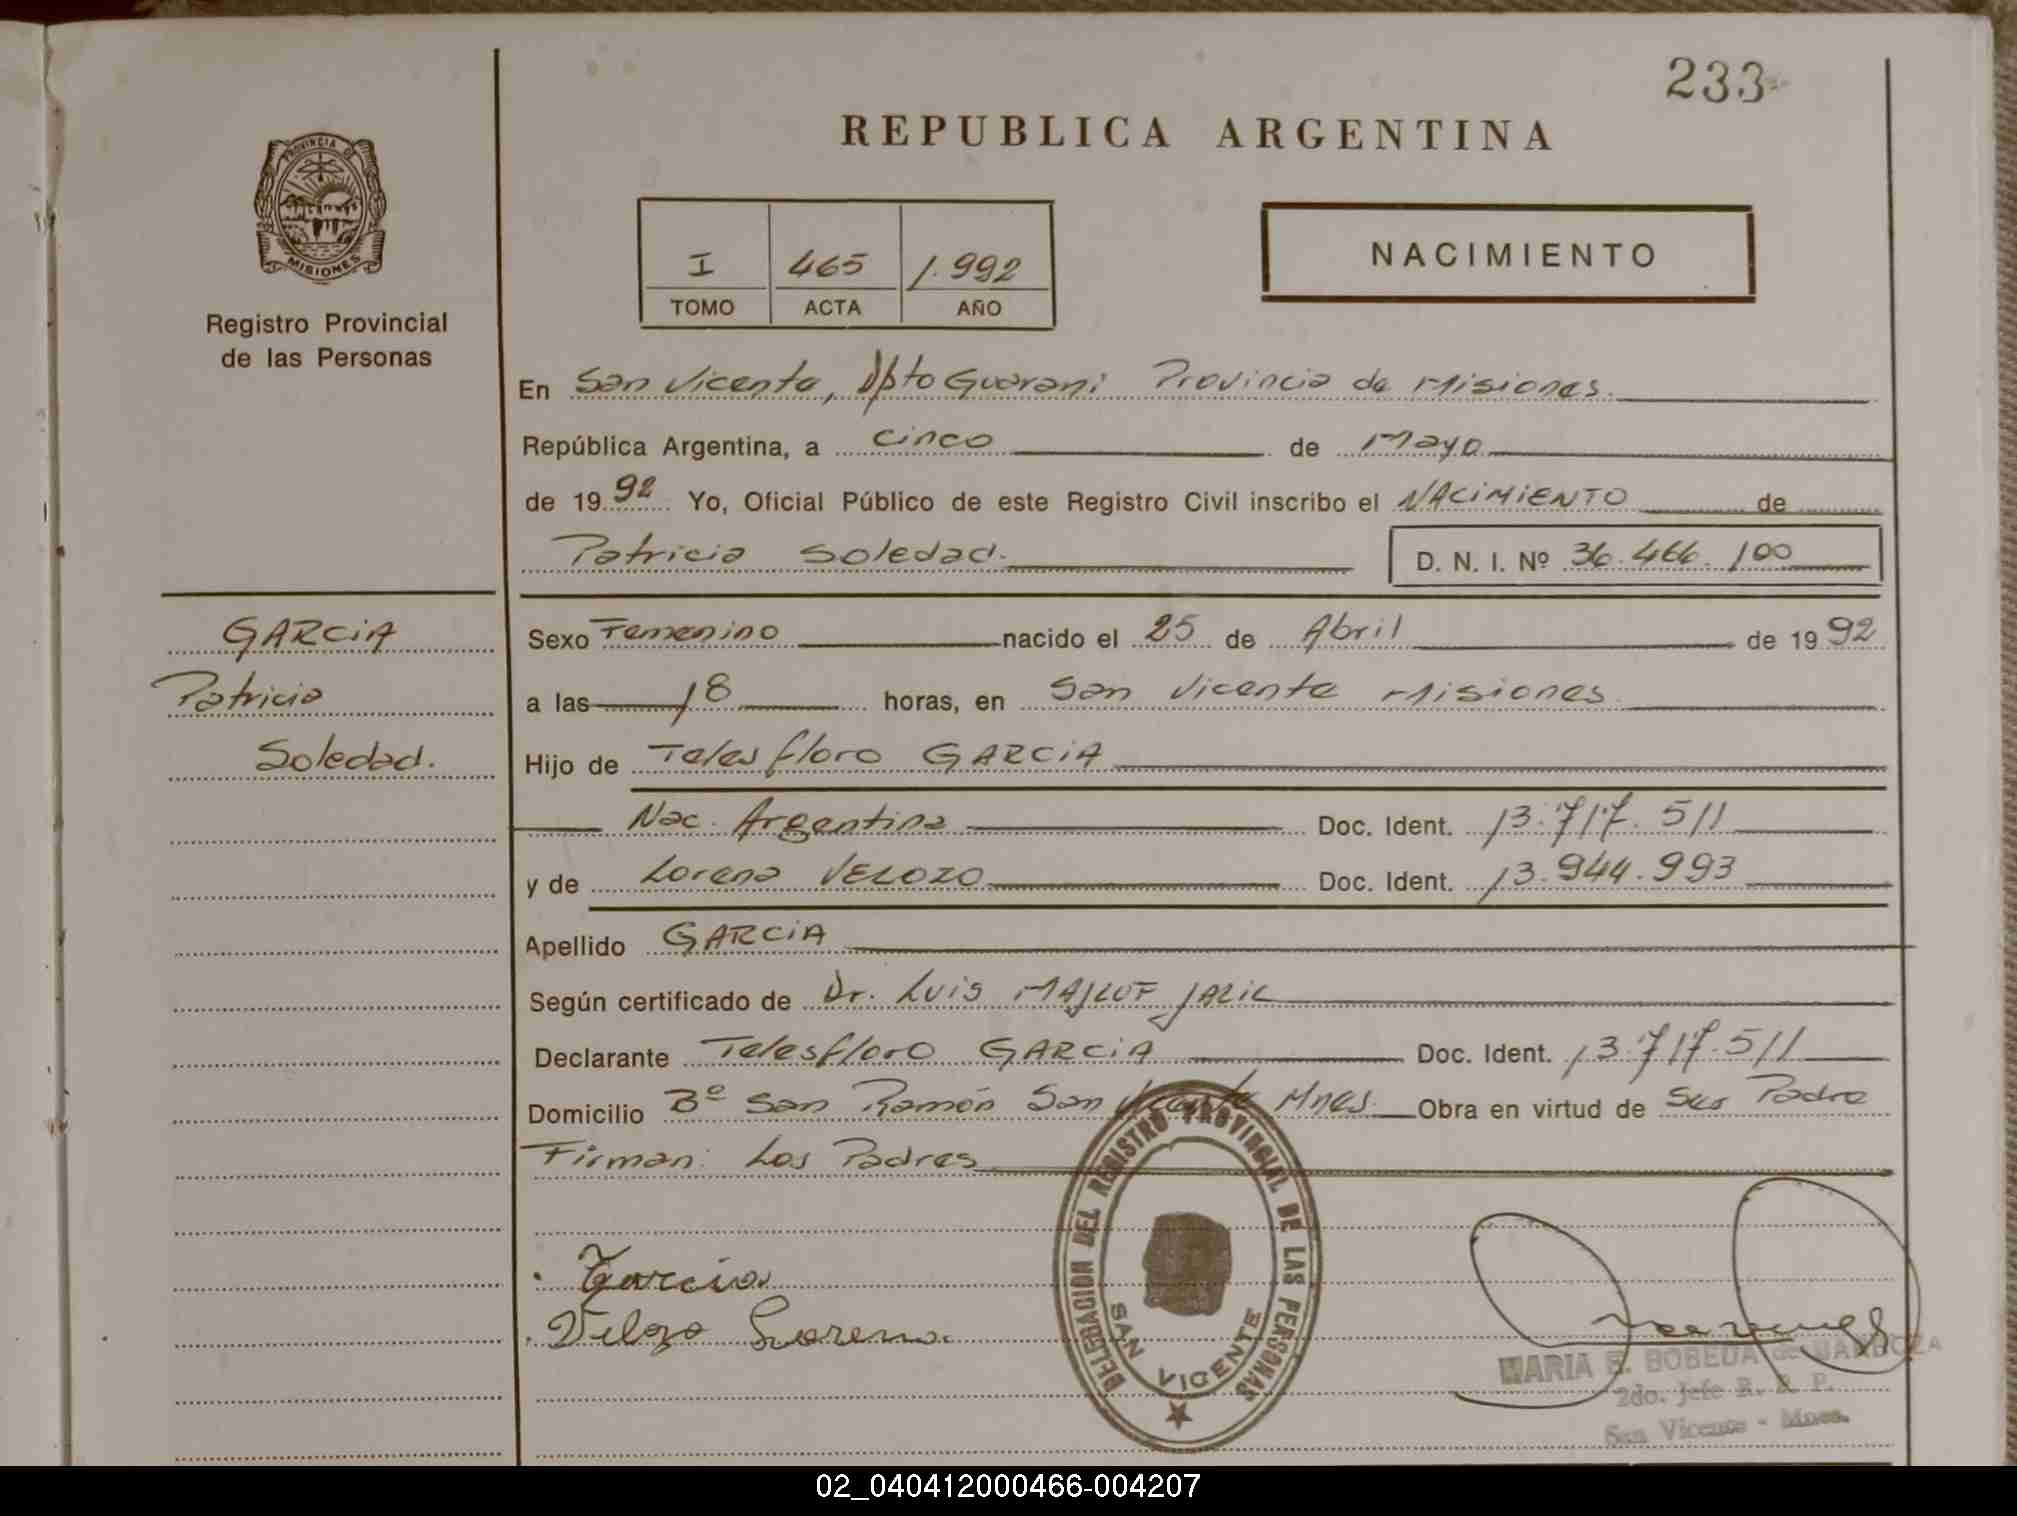 233
REPUBLICA ARGENTINA
PROVINCIA DE
MISIONES
Registro Provincial
de las Personas
I 465 1.992
TOMO ACTA AÑO
NACIMIENTO
En San Vicente, Dpto Guarani Provincia de Misiones.
República Argentina, a cinco de Mayo
de 1992 Yo, Oficial Público de este Registro Civil inscribo el NACIMIENTO de
Patricia Soledad. D. N. I. Nº 36.466.100
GARCIA
Patricia
Soledad.
Sexo Femenino nacido el 25 de Abril de 1992
a las 18 horas, en San Vicente Misiones.
Hijo de Telesfloro GARCIA
Nac. Argentina Doc. Ident. 13.717.511
y de Lorena VELOZO Doc. Ident. 13.944.993
Apellido GARCIA
Según certificado de Dr. Luis MAJLUF JALIL
Declarante Telesfloro GARCIA Doc. Ident. 13.717.511
Domicilio Bº San Ramón San Vicente Mnes. Obra en virtud de Ser Padre
Firman: Los Padres
Garcia
Velozo Lorena.
DELEGACION DEL REGISTRO PROVINCIAL DE LAS PERSONAS
SAN VICENTE
MARIA E. BOBEDA de MANDOZA
2do. Jefe R. P. P.
San Vicente - Mnes.
02_040412000466-004207